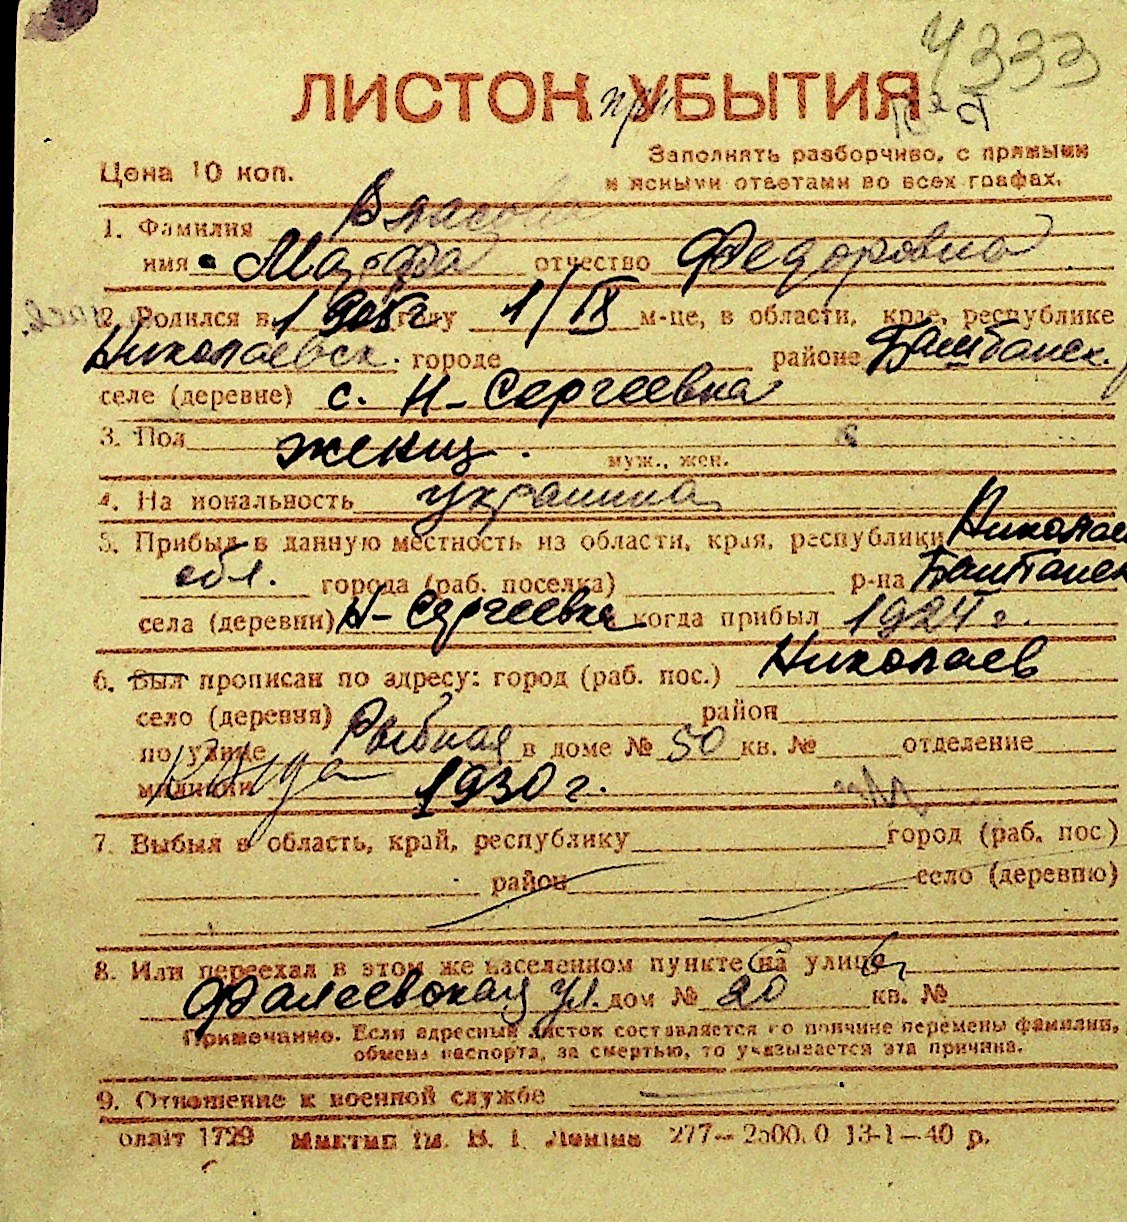 4333
ЛИСТОК при УБЫТИЯ
Цена 10 коп.
Заполнять разборчиво, с прямыми
и ясными ответами во всех графах.
1. Фамилия Власова
имя Марфа отчество Федоровна
2. Родился в 1908 г. году 1/IX м-це, в области, крае, республике
Николаевск. городе районе Баштанск.
селе (деревне) с. Н-Сергеевка
3. Пол женщ.
муж., жен.
4. Национальность украинка
5. Прибыл в данную местность из области, края, республики Николаев
обл. города (раб. поселка) р-на Баштанск
села (деревни) Н-Сергеевка когда прибыл 1924 г.
6. Был прописан по адресу: город (раб. пос.) Николаев
село (деревня) район
по улице Рыбная в доме № 50 кв. № отделение
милиции когда 1930 г.
7. Выбыл в область, край, республику город (раб. пос.)
район село (деревню)
8. Или переехал в этом же населенном пункте на улице
Фалеевская ул. дом № 20 кв. №
Примечание. Если адресный листок составляется по причине перемены фамилии,
обмена паспорта, за смертью, то указывается эта причина.
9. Отношение к военной службе
облліт 1729 Миктип ім. В. І. Леніна 277—2500.0 13-1—40 р.